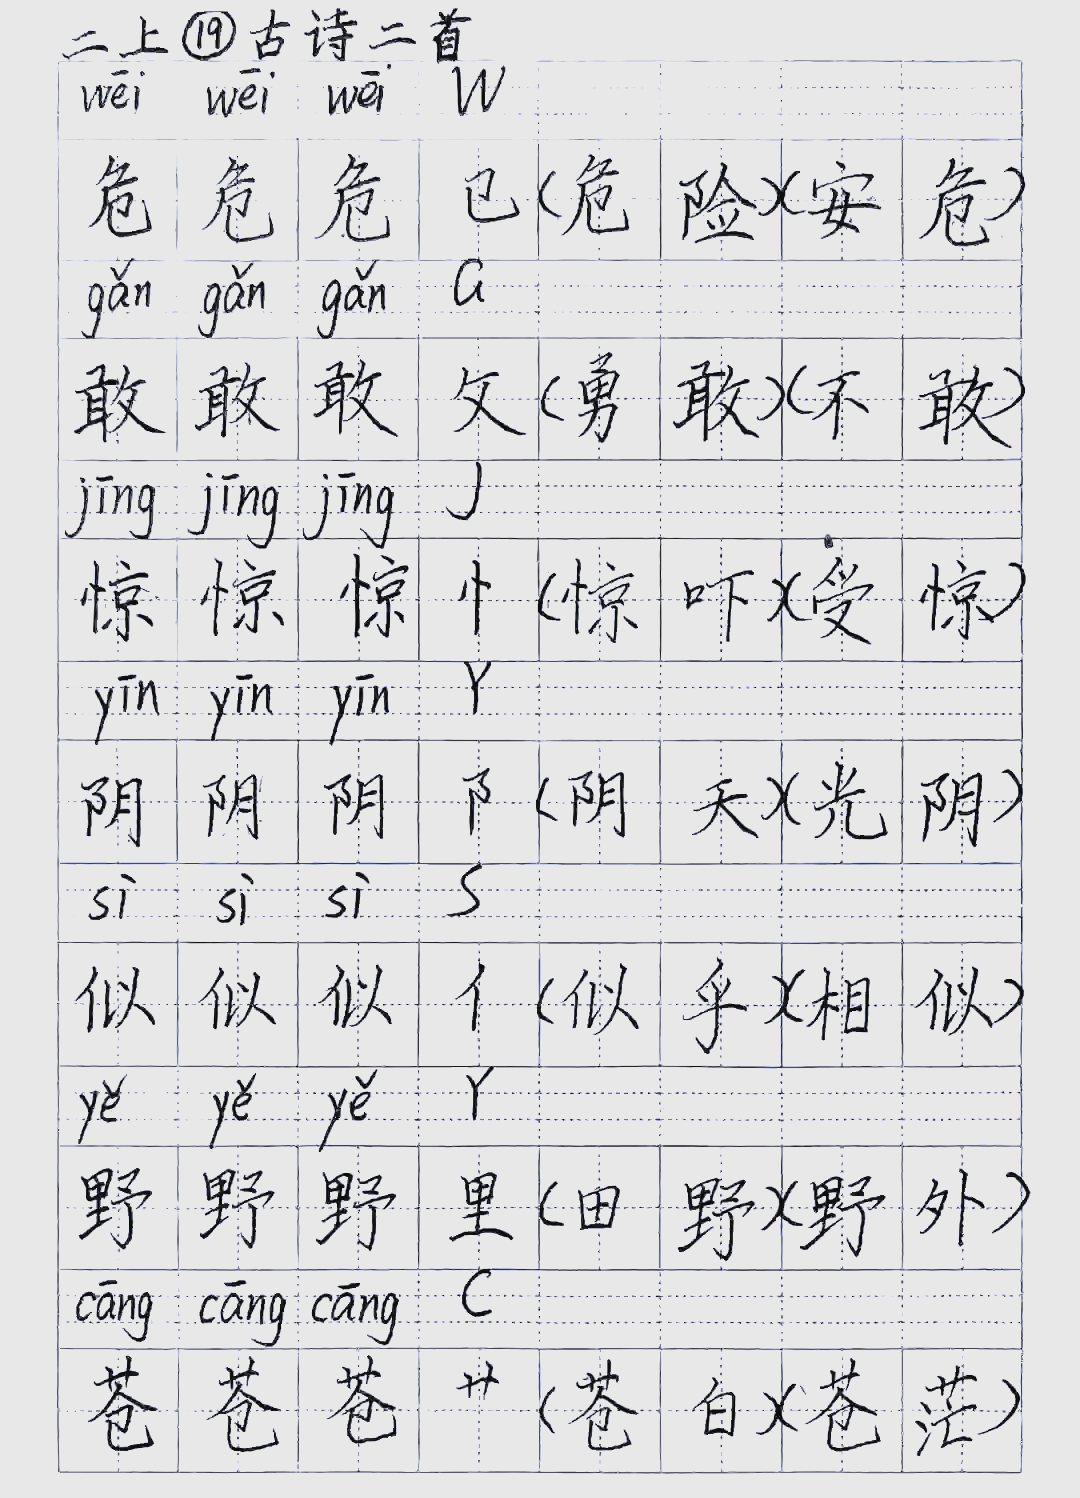 二上⑲古诗二首
wēi wēi wēi W
危 危 危 㔾 (危 险)(安 危)
gǎn gǎn gǎn G
敢 敢 敢 攵 (勇 敢)(不 敢)
jīng jīng jīng J
惊 惊 惊 忄 (惊 吓)(受 惊)
yīn yīn yīn Y
阴 阴 阴 阝 (阴 天)(光 阴)
sì sì sì S
似 似 似 亻 (似 乎)(相 似)
yě yě yě Y
野 野 野 里 (田 野)(野 外)
cāng cāng cāng C
苍 苍 苍 艹 (苍 白)(苍 茫)